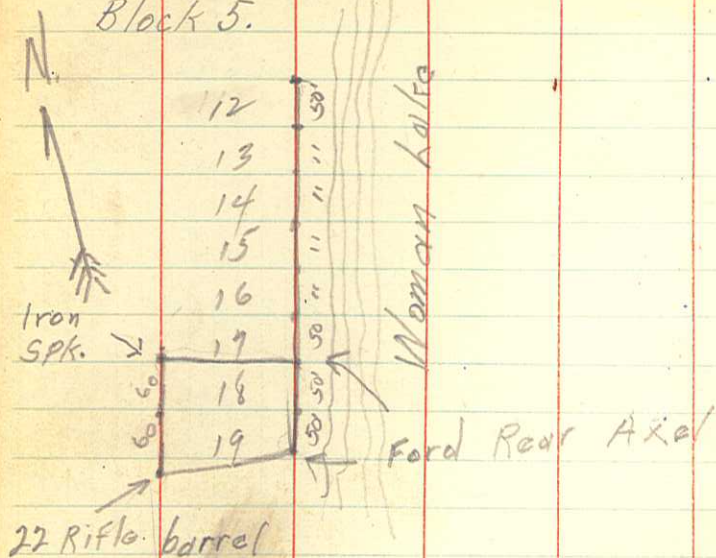 Block 5.
N.
12 50'
13 "
14 "
15 "
16 "
17 50
60 18 50'
60 19 50'
Iron
Spk.
Woman Lake
Ford Rear Axel
22 Rifle barrel